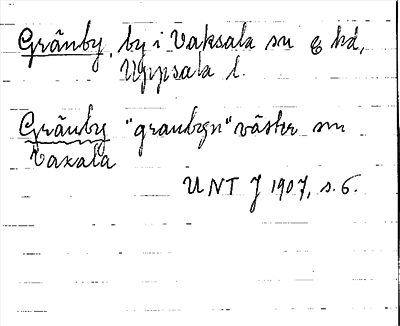 Gränby, by i Vaksala sn o hd,
Uppsala l.
Gränby "granbyn" väster om
Vaxala
UNT J 1907, s. 6.